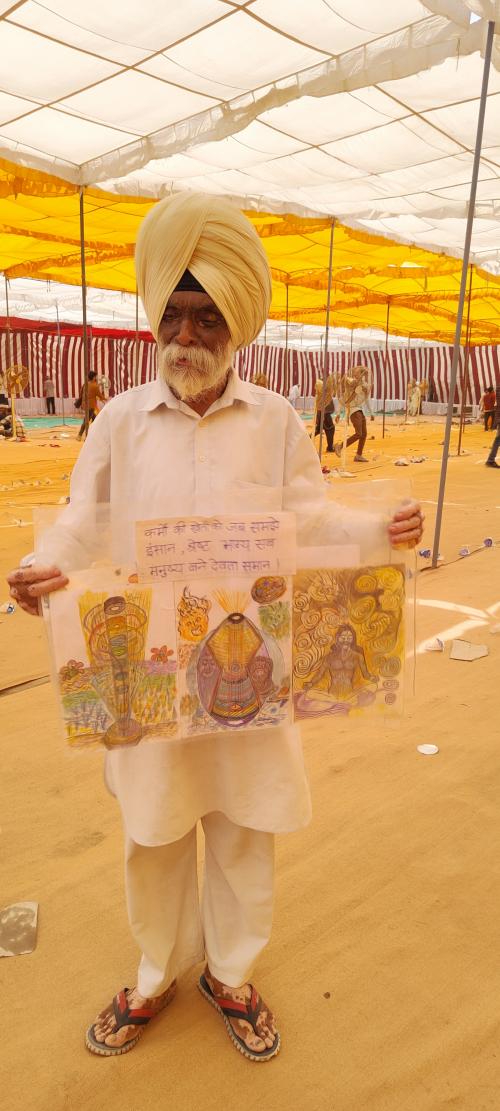 कर्मो की खेल को जब समझे
इंसान, श्रेष्ट भव्य सब
मनुष्य बने देवता समान ।